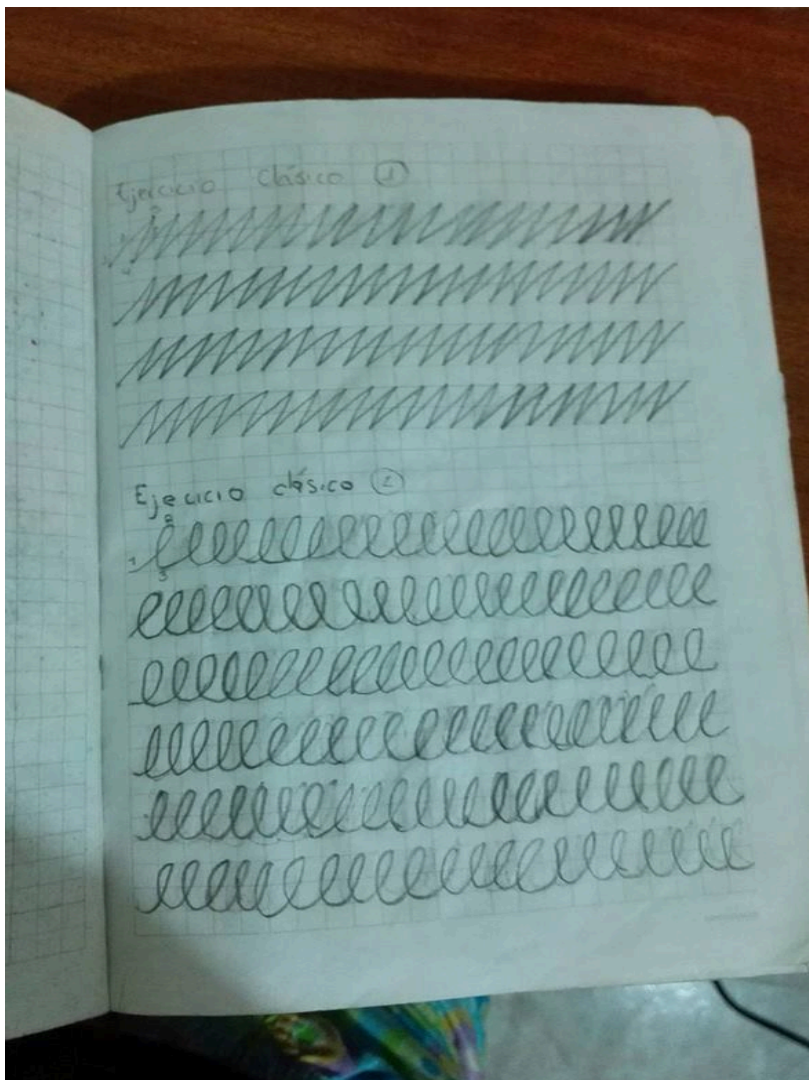 Ejercicio Clásico 1
Ejecicio clásico 2